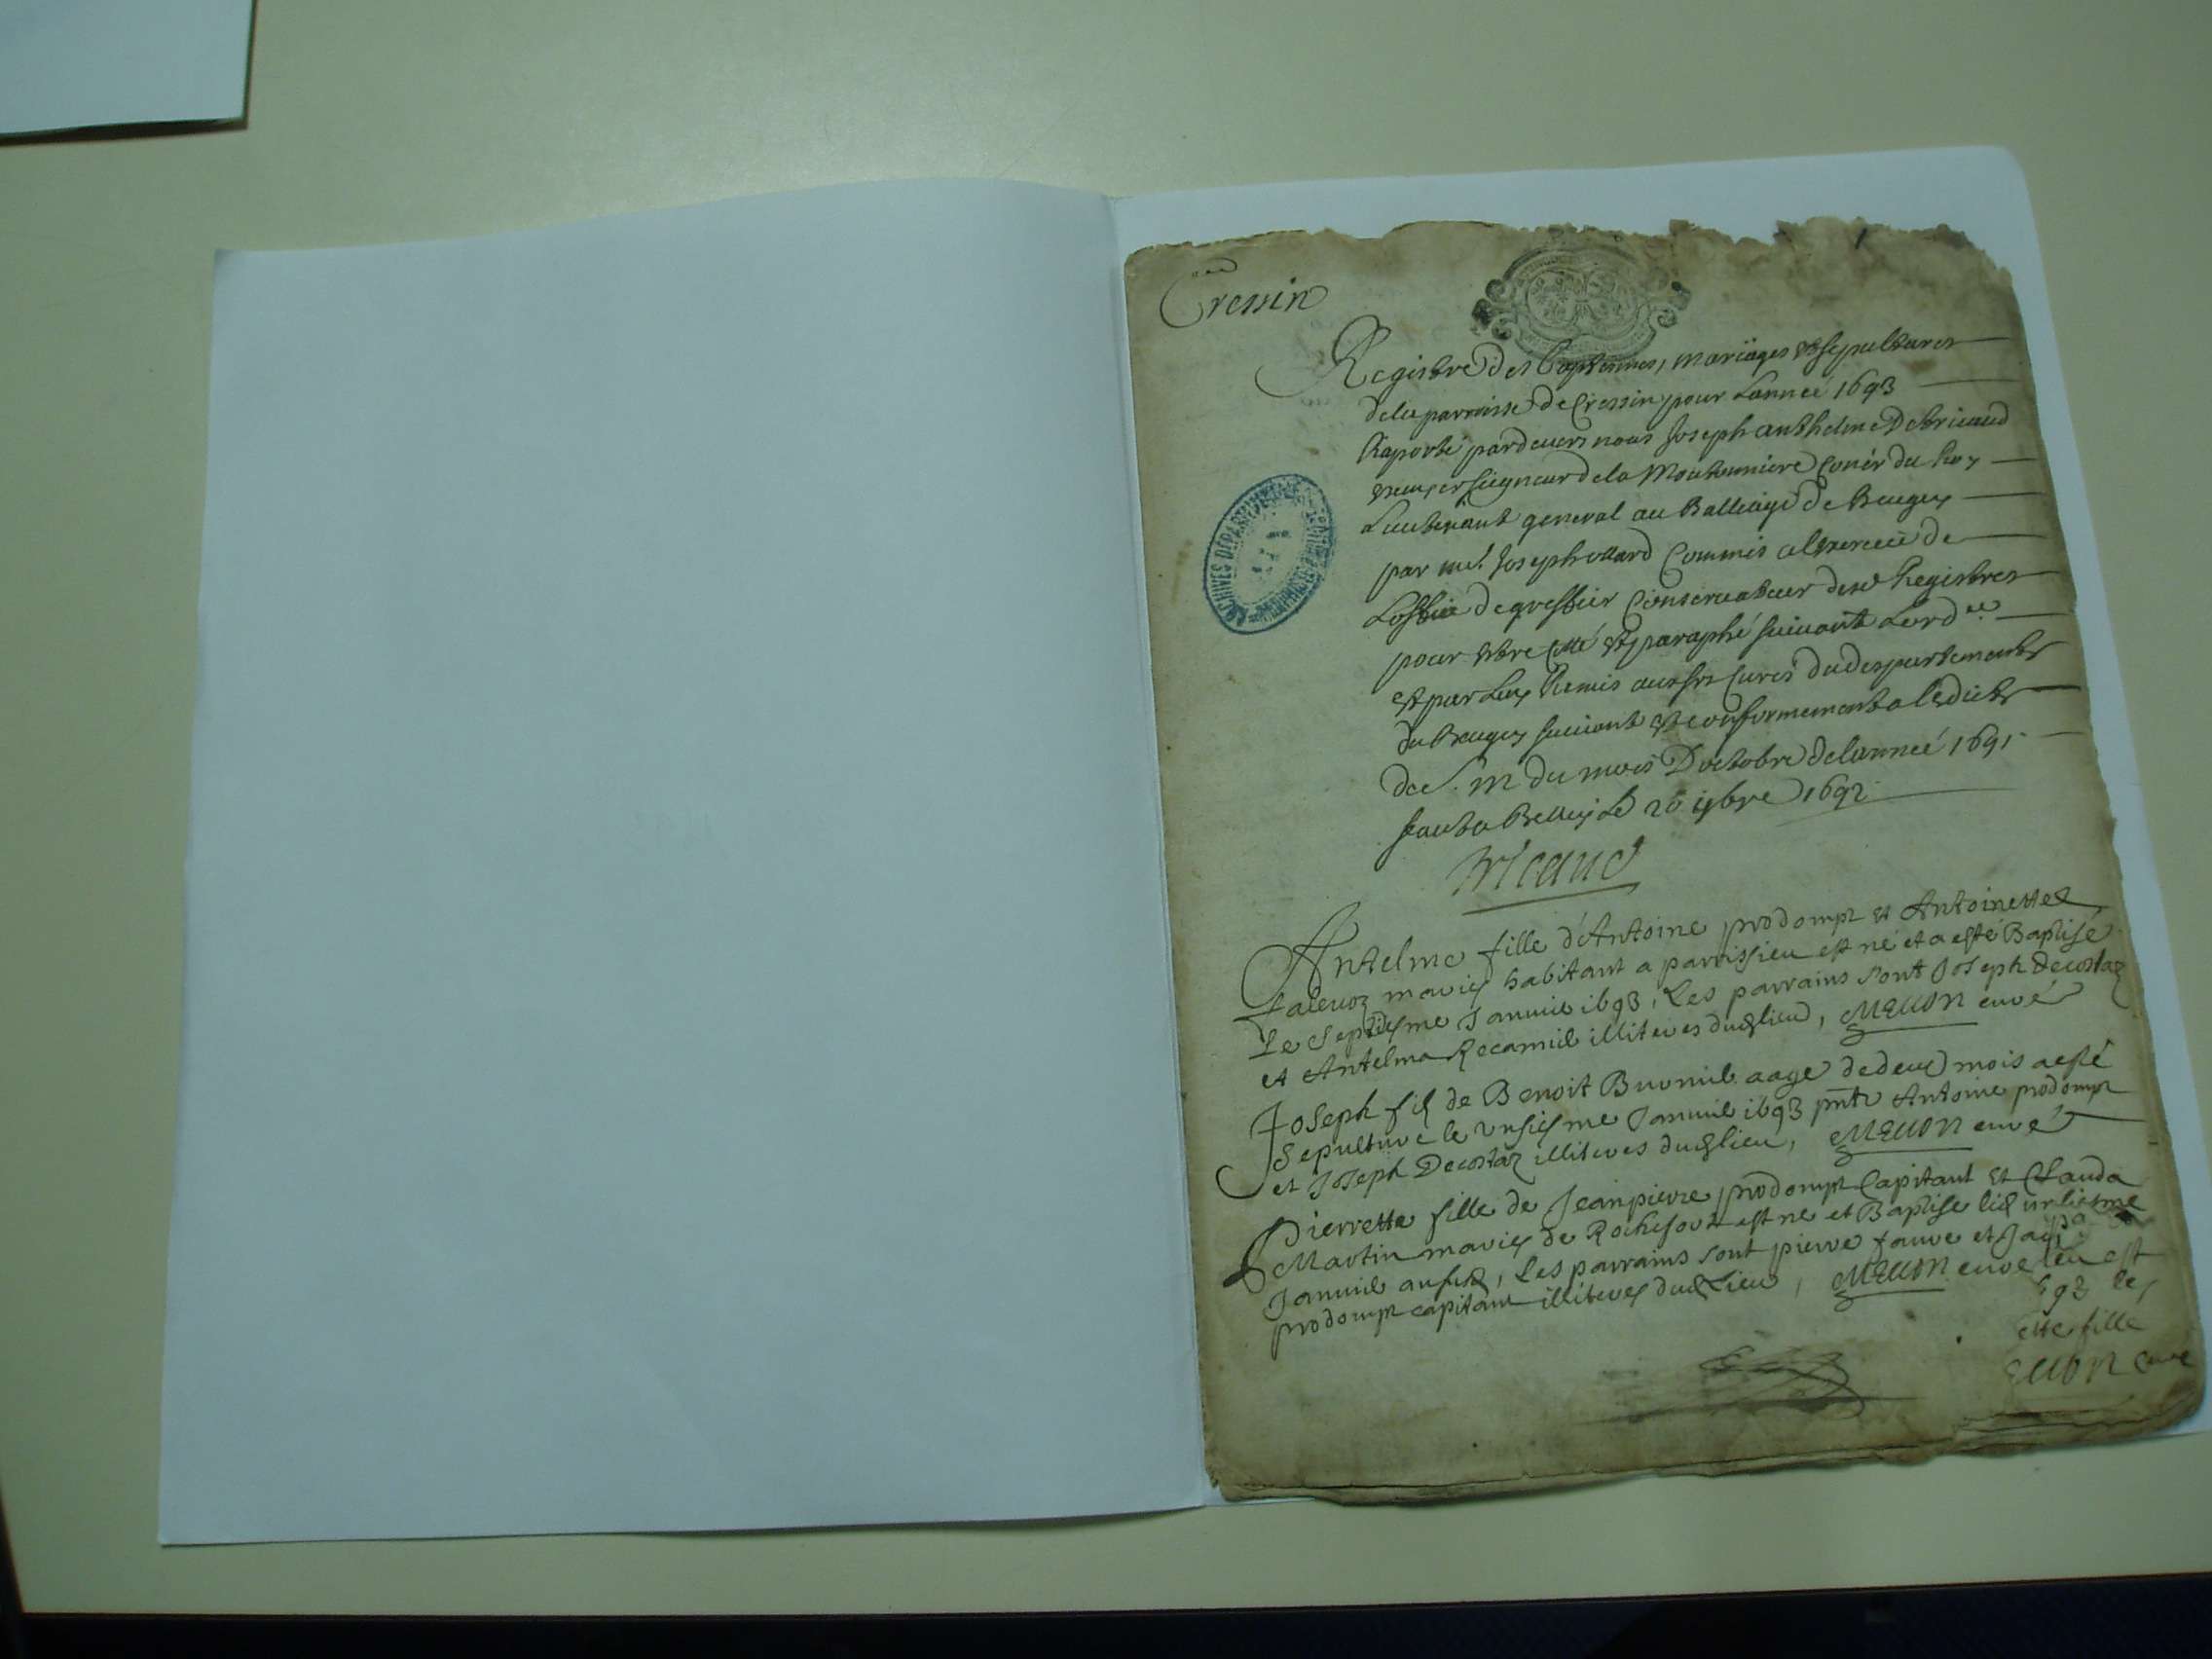 Cressin
Registre des Baptesmes, mariages et sepultures
dela parroisse de Cressin pour Lanneé 1693
Raporté pardevers nous Joseph anthelme De tricaud
seigneur dela Moutonniere Coner du Roy
Lieutenant general au Balliage de Beugey
par me. Joseph ollard Commis alexercice de
Loffice de greffier Conservateur desd Registres
pour estre Cotté et paraphé suivant Lord.ce
et par Luy Remis aux srs Curés du despartement
du Beugey suivant et conformement a l'edict
de S. M du mois Doctobre delanneé 1691
fait a Belley Le 20 xbre 1692
Tricaud
ARCHIVES DÉPARTEMENTALES
Antelme fille d'Antoine prodompt et Antoinette
mariés habitant a parrissieu est né et a esté Baptisé
Le Septiesme Janvié 1693, Les parrains sont Joseph Decostaz
et Antelma Recamié illiteres dudt lieu, MELLON curé
Joseph fils de Benoit Buvonié aage de deux mois a esté
Sepulturé le unsiesme Janvié 1693 pnt Antoine prodompt
et Joseph Decostaz illiteres dudt lieu, MELLON curé
Pierrette fille de Jeanpierre prodompt Capitant Et Clauda
Martin mariés de Rochefort est né et Baptisé
Janvié, Les parrains sont pierre faure et
prodompt capitant illiteres dudt Lieu, MELLON curé
est
les
ette fille
ELLON curé